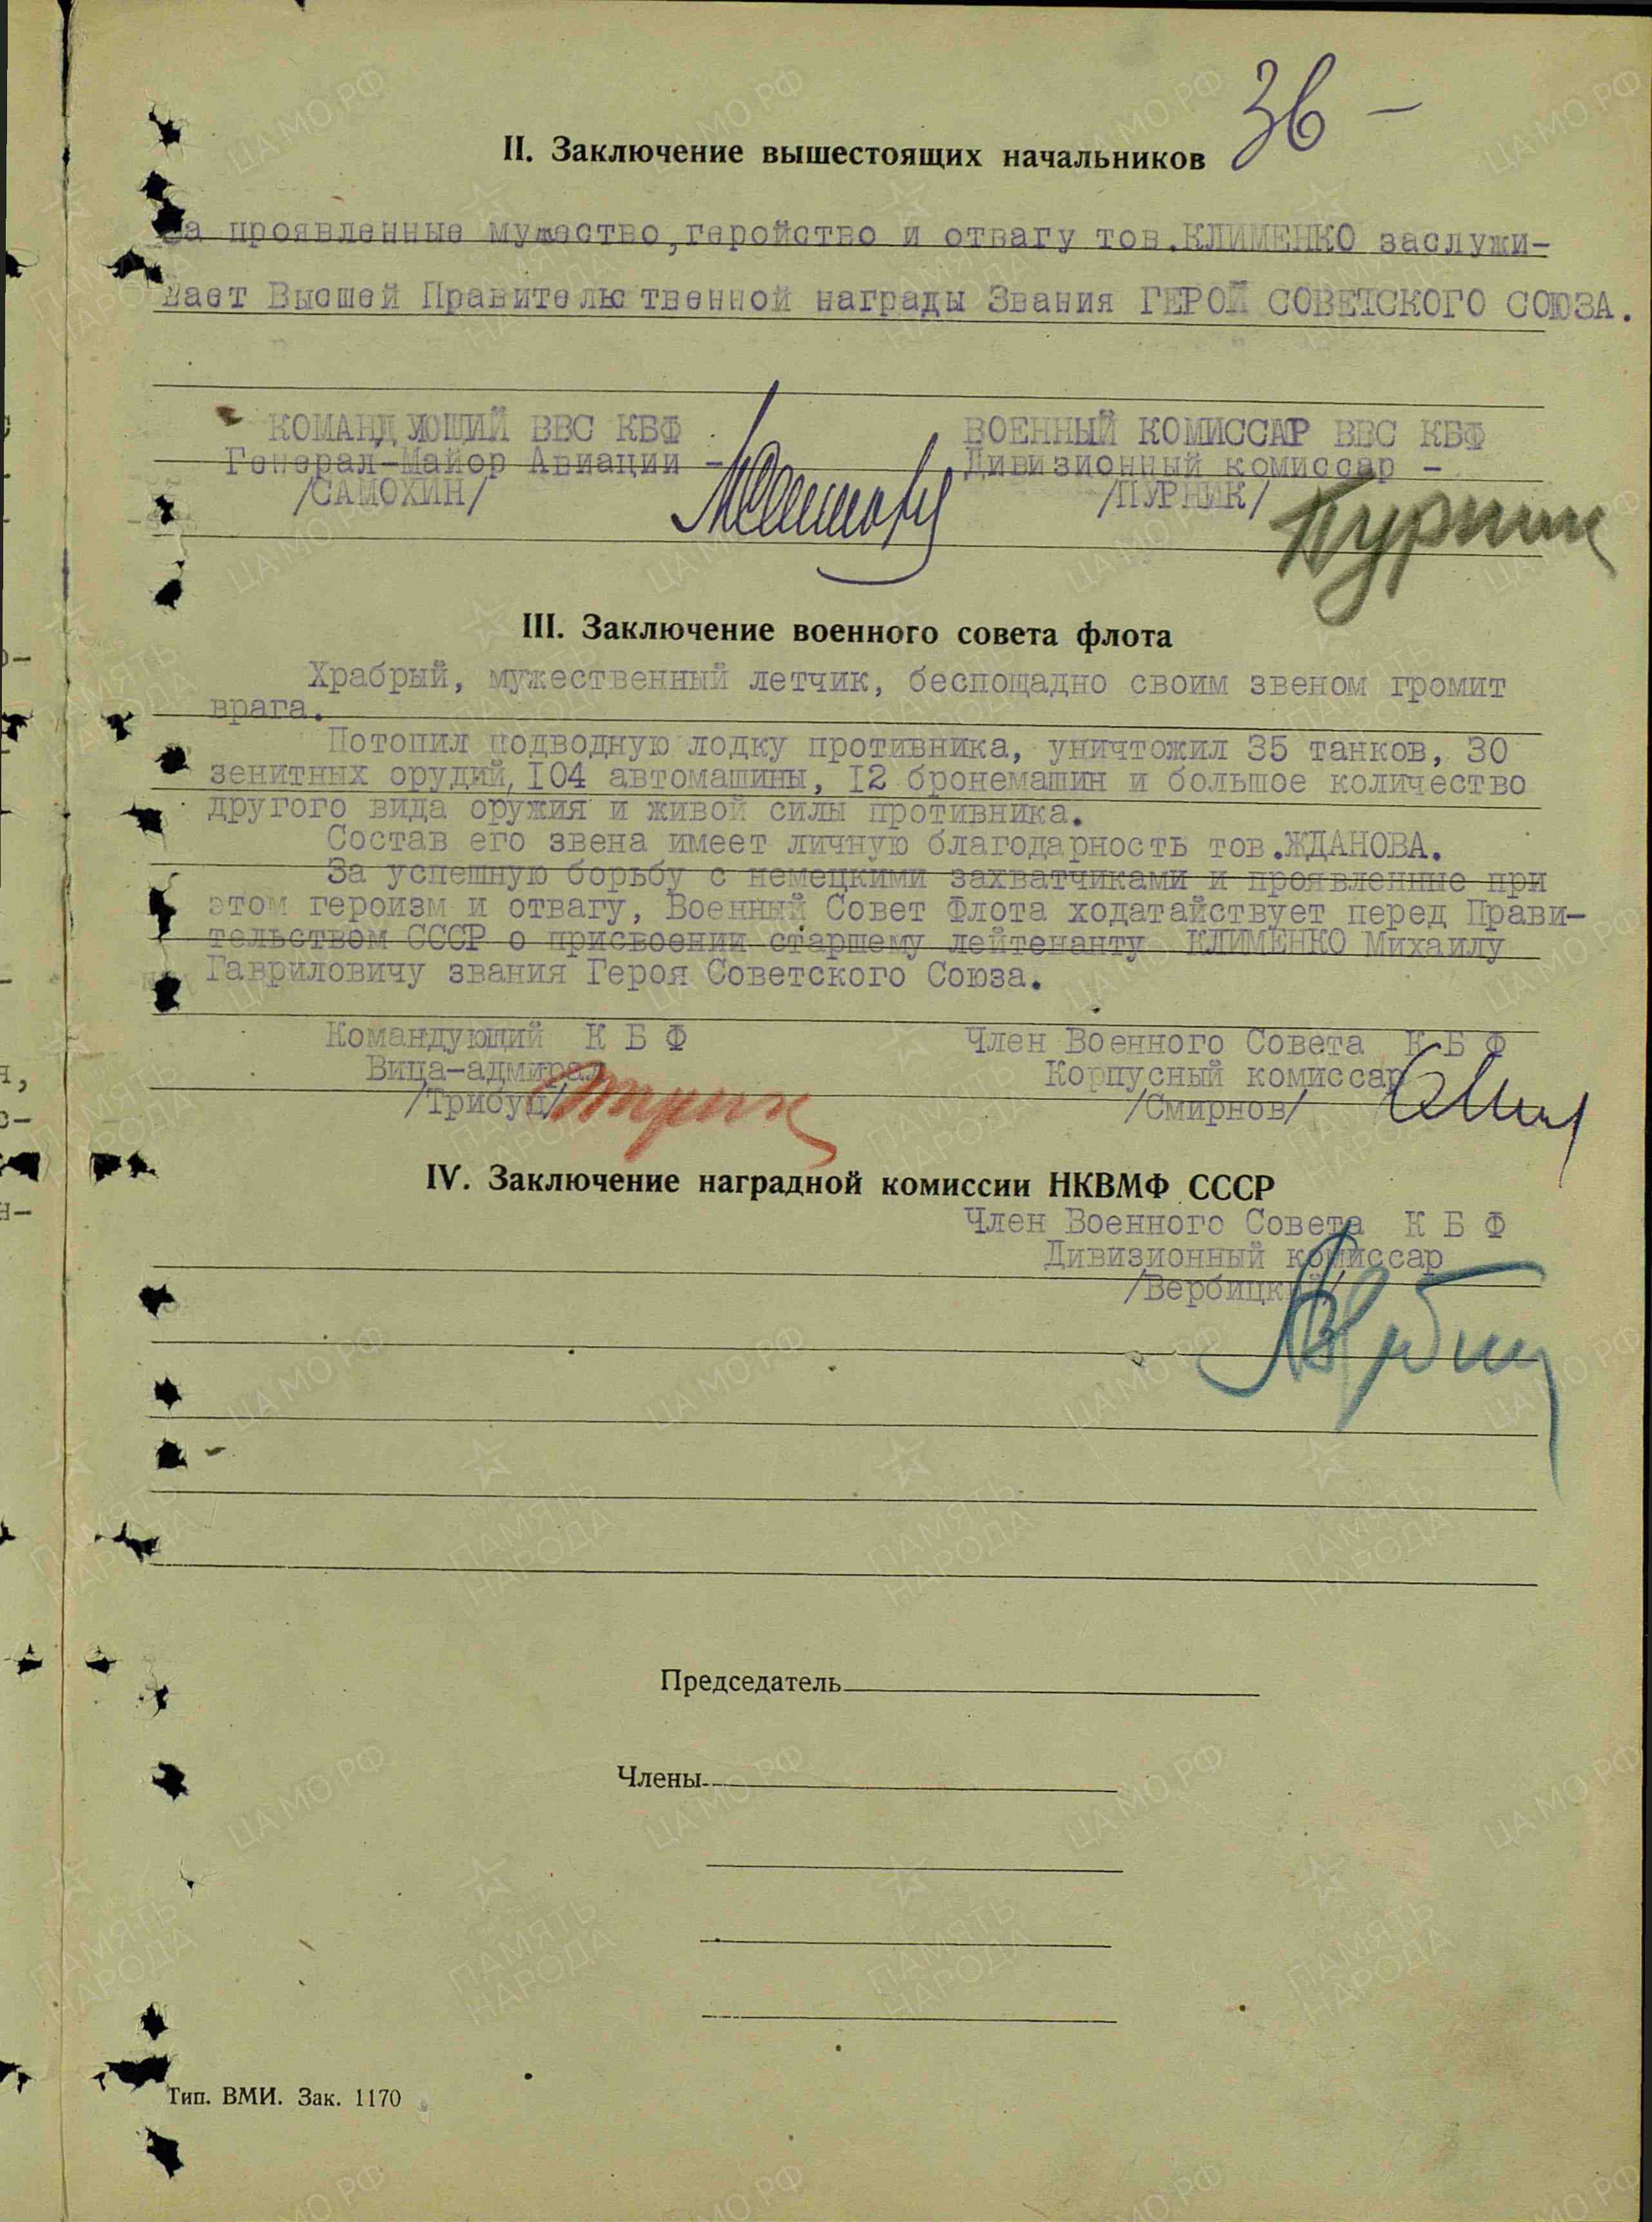 36 –
II. Заключение вышестоящих начальников
За проявленные мужество, геройство и отвагу тов.КЛИМЕНКО заслужи-
вает Высшей Правительственной награды Звания ГЕРОЙ СОВЕТСКОГО СОЮЗА.
КОМАНДУЮЩИЙ ВВС КБФ ВОЕННЫЙ КОМИССАР ВВС КБФ
Генерал-Майор Авиации - Дивизионный комиссар -
/САМОХИН/ /ПУРНИК/
Пурник
III. Заключение военного совета флота
Храбрый, мужественный летчик, беспощадно своим звеном громит
врага.
Потопил подводную лодку противника, уничтожил 35 танков, 30
зенитных орудий, 104 автомашины, 12 бронемашин и большое количество
другого вида оружия и живой силы противника.
Состав его звена имеет личную благодарность тов.ЖДАНОВА.
За успешную борьбу с немецкими захватчиками и проявленные при
этом героизм и отвагу, Военный Совет Флота ходатайствует перед Прави-
тельством СССР о присвоении старшему лейтенанту КЛИМЕНКО Михаилу
Гавриловичу звания Героя Советского Союза.
Командующий К Б Ф Член Военного Совета К Б Ф
Вица-адмирал Корпусный комиссар
/Трибуц/ /Смирнов/
IV. Заключение наградной комиссии НКВМФ СССР
Член Военного Совета К Б Ф
Дивизионный комиссар
/Вербицкий/
Председатель
Члены
Тип. ВМИ. Зак. 1170
ЦАМО.РФ
ПАМЯТЬ
НАРОДА